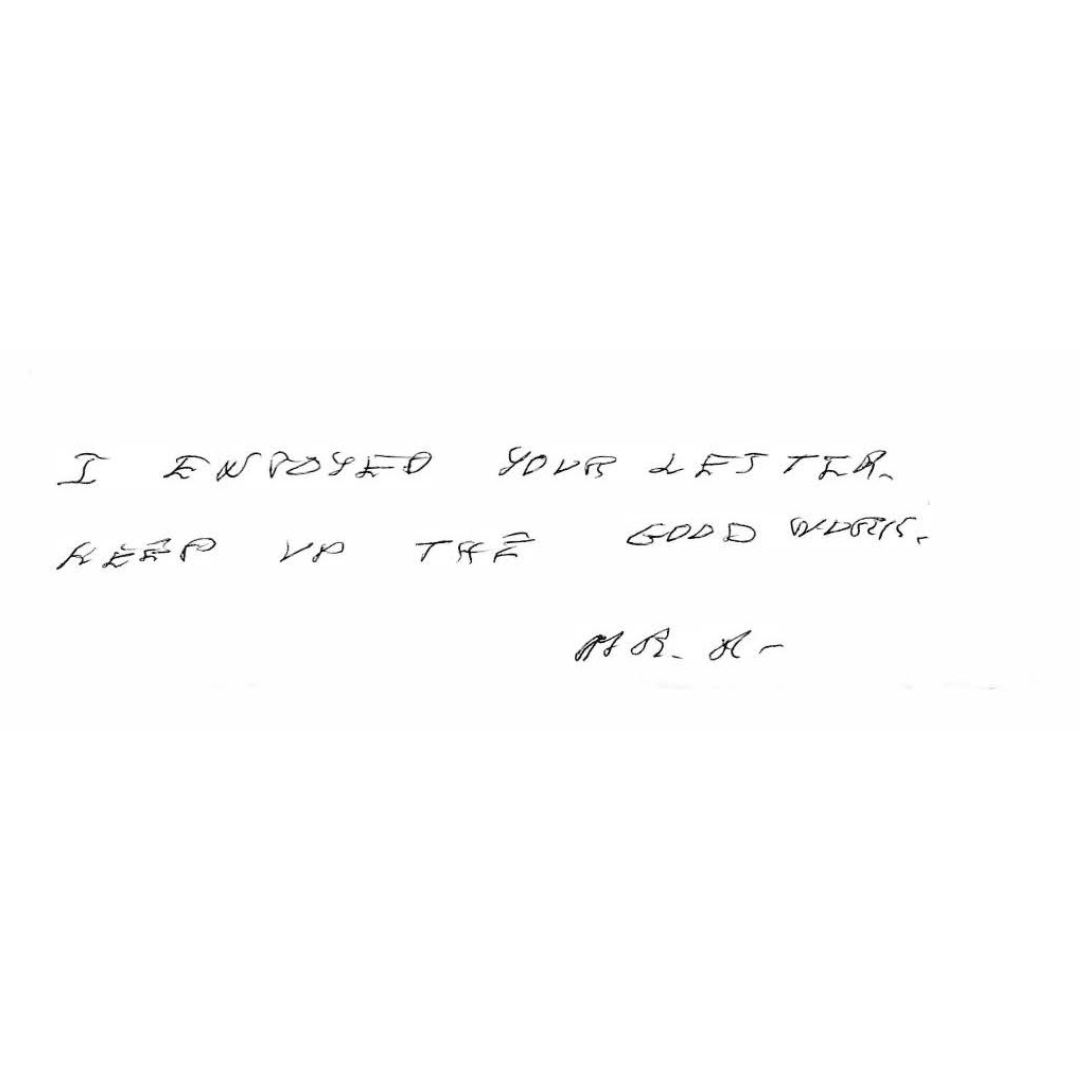 I ENJOYED YOUR LETTER.
KEEP UP THE GOOD WORK.
MR. A-